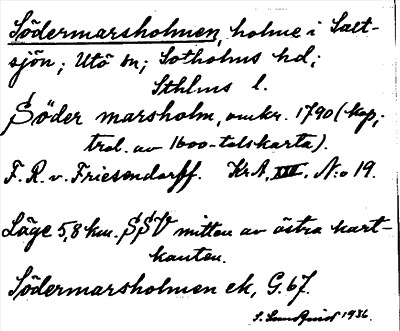 Södermarsholmen, holme i Salt-
sjön; Utö sn; Sotholms hd;
Sthlms l.
Söder marsholm, omkr. 1790 (kop,
trol. av 1600-talskarta).
F. R. v. Friesendorff. KrA, XIII, N:o 19.
Läge 5,8 km. SSV mitten av östra kart-
kanten.
Södermarsholmen ek, G. 67.
S. Lundquist 1936.